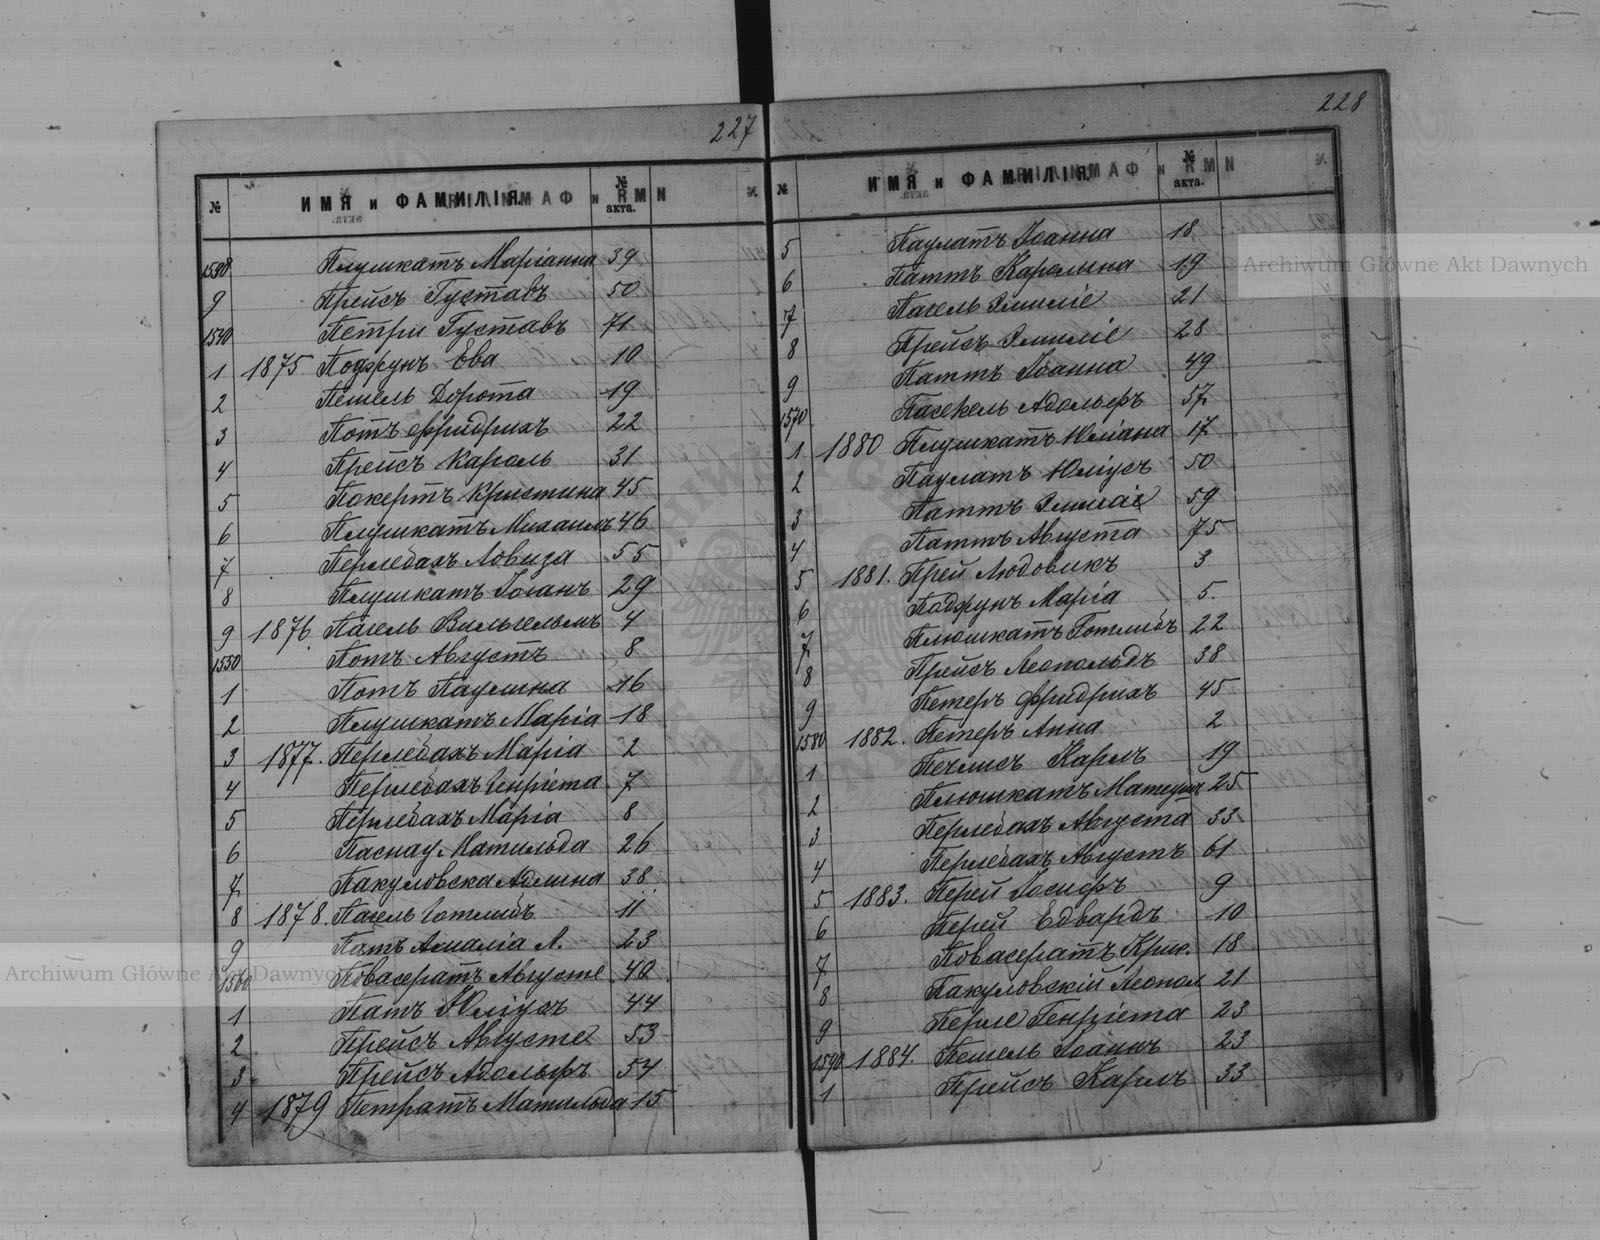 227
№ ИМЯ и ФАМИЛІЯ. № акта.
1538 Плушкатъ Маріанна 39
9 Прейсъ Густавъ 50
1540 Петри Густавъ 71
1 1875 Поджунъ Ева 10
2 Пешель Дорота 19
3 Потъ Фридрихъ 22
4 Прейсъ Кароль 31
5 Покертъ Кристина 45
6 Плушкатъ Михаилъ 46
7 Перлебахъ Ловиза 55
8 Плушкатъ Іоганъ 29
9 1876 Пагель Вильгельмъ 4
1550 Потъ Августъ 8
1 Потъ Паулина 16
2 Плушкатъ Марія 18
3 1877. Перлебахъ Марія 2
4 Перлебахъ Генріета 7
5 Перлебахъ Марія 8
6 Паснау Матильда 26
7 Пакуловска Адлина 38
8 1878. Пагель Готлибъ 11
9 Патъ Амалія Л. 23
1560 Повасератъ Августе 40
1 Патъ Юліусъ 44
2 Прейсъ Августе 53
3 Прейсъ Адольфъ 54
4 1879 Петратъ Матильда 15
228
№ ИМЯ и ФАМИЛІЯ. № акта.
5 Паулатъ Іоанна 18
6 Паттъ Каролина 19
7 Пагель Эмиліе 21
8 Прейсъ Эмиліе 28
9 Паттъ Іоанна 49
1570 Адольфъ 57
1 1880 Плушкатъ Юліана 17
2 Паулатъ Юліусъ 50
3 Паттъ Эмиліе 59
4 Паттъ Августа 75
5 1881. Прей Людовикъ 3
6 Поджунъ Марія 5.
7 Плюшкатъ Готлибъ 22
8 Прейсъ Леопольдъ 38
9 Петеръ Фридрихъ 45
1580 1882. Петеръ Анна 2
1 Карлъ 19
2 Плюшкатъ 25
3 Перлебахъ Августа 33
4 Перлебахъ Августъ 61
5 1883. Перей Іосифъ 9
6 Перей Едвардъ 10
7 Повасератъ Крис. 18
8 Пакуловскій Леопол 21
9 Перле Генріета 23
1590 1884. Пешель Іоаннъ 23
1 Прейсъ Карлъ 33
Archiwum Główne Akt Dawnych
Archiwum Główne Akt Dawnych